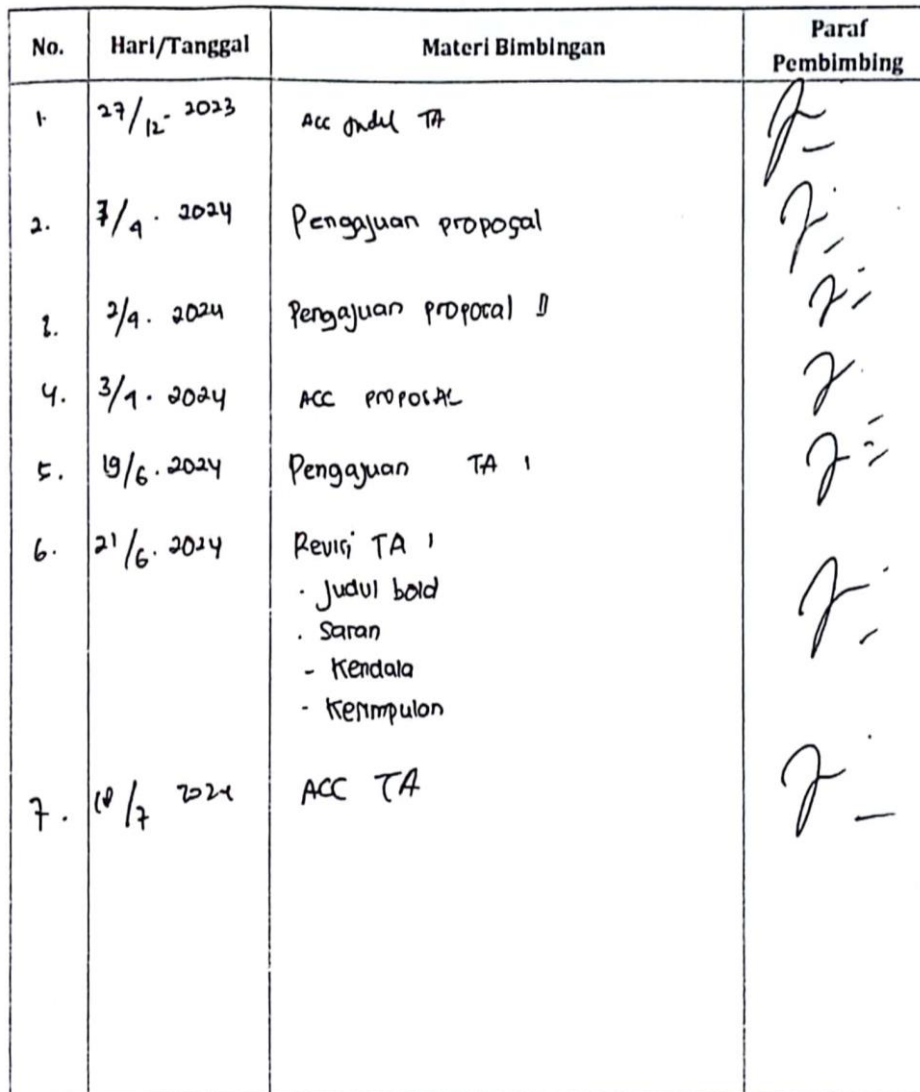 No. Hari/Tanggal Materi Bimbingan Paraf Pembimbing
1. 27/12- 2023 Acc Judul TA
2. 7/9. 2024 Pengajuan proposal
3. 2/9. 2024 Pengajuan proposal II
4. 3/9. 2024 ACC PROPOSAL
5. 19/6. 2024 Pengajuan TA 1
6. 21/6. 2024 Revisi TA 1
. Judul bold
. Saran
- Kendala
- Kesimpulan
7. /7 2024 ACC TA